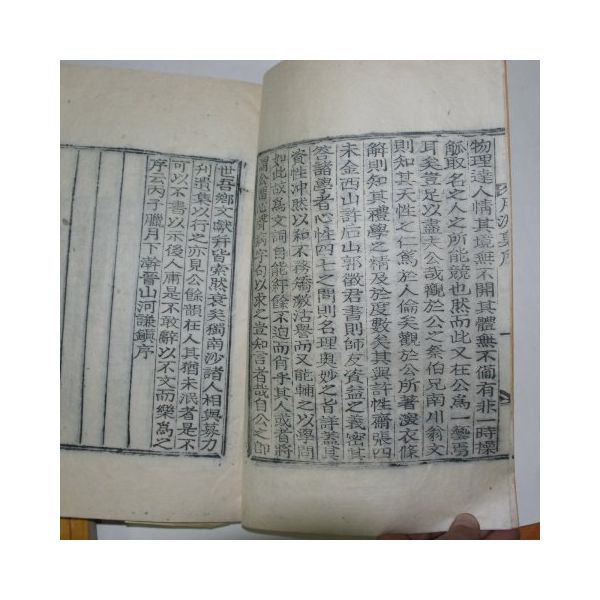 物理達人情其境無不開其體無不備有非一時操
觚取名之人之所能競也然而此又在公為一藝焉
耳矣豈足以盡夫公哉觀於公之祭伯兄南川翁文
則知其天性之仁篤於人倫矣觀於公所著深衣條
解則知其禮學之精及於度數矣其與許性齋張四
未金西山許后山郭徵君書則師友資益之義密其
答諸學者心性四七之間則名理奧妙之旨詳蓋其
資性沖然以和不務矯激沽譽而又能輔之以學問
如此故為文詞自能紆餘不迫而肖乎其人或者將
病字句以求之豈知言者哉自公之卽
世吾鄉文獻幷皆索然哀矣獨南沙諸人相與募力
刋遺集以行之亦見公餘韻在人其猶未泯者是不
可以不書以示後人肅是不敢辭以不文而樂為之
序云丙子臘月下澣晉山河謙鎭序